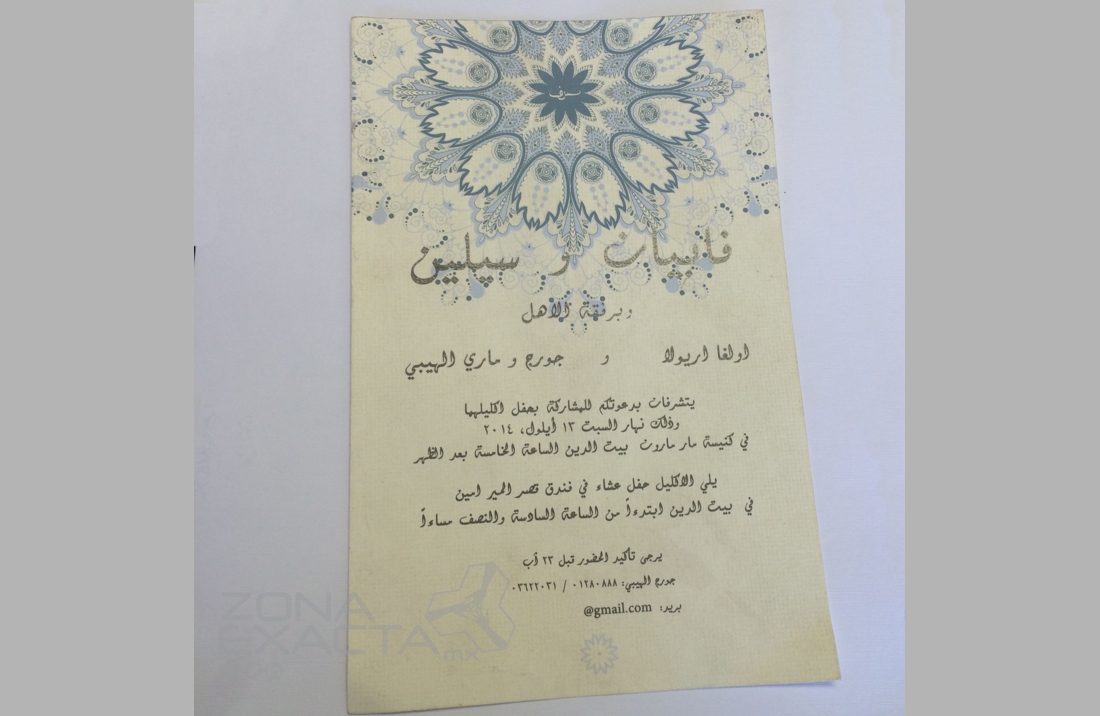 فابيان و سيلين
وبرفقة الاهل
اولغا اريولا و جورج و ماري الهيبي
يتشرفان بدعوتكم للمشاركة بحفل اكليلهما
وذلك نهار السبت ١٣ أيلول، ٢٠١٤
في كنيسة مار مارون بيت الدين الساعة الخامسة بعد الظهر
يلي الاكليل حفل عشاء في فندق قصر المير امين
في بيت الدين ابتدءاً من الساعة السادسة والنصف مساءاً
يرجى تأكيد الحضور قبل ٢٣ أب
جورج الهيبي: ٠١٢٨٠٨٨٨ / ٠٣٦٢٢٠٣١
بريد: @gmail.com
ZONA
EXACTA
mx